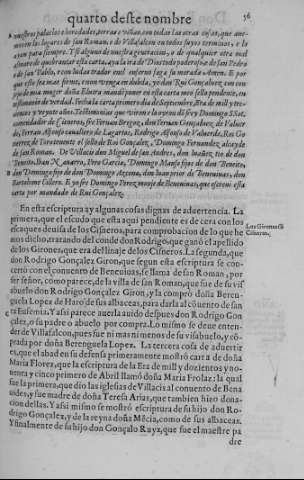 quarto deste nombre 56
nuestros palacios e heredades, tierras e viñas, con todas las otras cosas, que ave-
mos en los lugares de san Roman, e de Villasilacin en todos suyos terminos, e lo
ayan para siempre. Y si alguno de nuestra generacion, o de qualquier otra enel
osasse de quebrantar esta carta, aya la ira de Dios todo poderoso, e de san Pedro
e de san Pablo, e con Iudas traidor enel infierno faga su morada. Amen. E por
que esto sea mas firme, e non venga en dubda, yo don Rui Gonçalez em con-
uno de mia muger doña Elvira mandè poner en esta carta meo sello pendiente, en
testimonio de verdad. Fecha la carta primero dia de Septiembre, Era de mil y tre-
zientos y veynte años. Testimonias que vieron e oyeron
comendador de Cisneros, frey Fernan Bregon, don Fernan Gonçalvez, de Valcar
cel, Ferran Alfonso cavallero de Lagartos, Rodrigo Alfonso de Valverde, Rui Go
mez de Torotomeo el fijo de Rui Gomez, Domingo Fernandez alcayde
de san Roman. De Villacis don Miguel de san Andres, don Ibañez, tio de don
Benito, Iban Navarro, Pero Garcia, Domingo Manso fijos de don Benito,
don Domingo fijo de don Domingo Azcona, don Iuan prior de Benevivas, don
Bartolome Cillero. E yo frey Domingo Perez monje de Benevivas, que escreui esta
carta por mandado de Rui Gonçalez.
En esta escriptura ay algunas cosas dignas de advertencia. La
primera, que el escudo que esta aqui pendiente es de cera con los
escaques devisa de los Cisneros, para comprobacion de lo que he
mos dicho, tratando del conde don Rodrigo, que ganó el apellido
de los Girones, que era del linaje de los Cisneros. La segunda, que
don Rodrigo Gonçalez Giron, que segun esta escriptura se con-
certò con el convento de Benevivas, se llama de san Roman, por
ser señor, como parece, de la villa de san Roman, que fue de su vis-
abuelo don Rodrigo Gonçalez Giron, y la comprò doña Beren-
guela Lopez de Haro de sus albaceas, para darla al cõuento de san
ta Eufemia. Y assi parece averla avido despues don Rodrigo Gon
çalez, o su padre o abuelo por compra. Lo mismo se deve enten-
der de Villasilcon, pues fue ni mas ni menos de su visabuelo, y cõ
prada por doña Berenguela Lopez. La tercera cosa de advertir
es, que el abad en su defensa primeramente mostrò carta de doña
Maria Flores, que la escriptura de la Era de mill y dozientos y no-
venta y cinco primero de Abril llamó doña Maria Frolaz: la qual
fue la primera, que dio las iglesias de Villacis al convento de Bena
vides, y fue madre de doña Teresa Arias, que tambien hizo dona-
cion dellas. Y assi mismo se mostrò escriptura de su hijo don Ro-
drigo Gonçalez, y de la reyna doña Mẽcia, como de sus albaceas.
Y finalmente de su hijo don Gonçalo Ruyz, que fue el maestre pa
dre
Los Girones sõ
Cisneros.